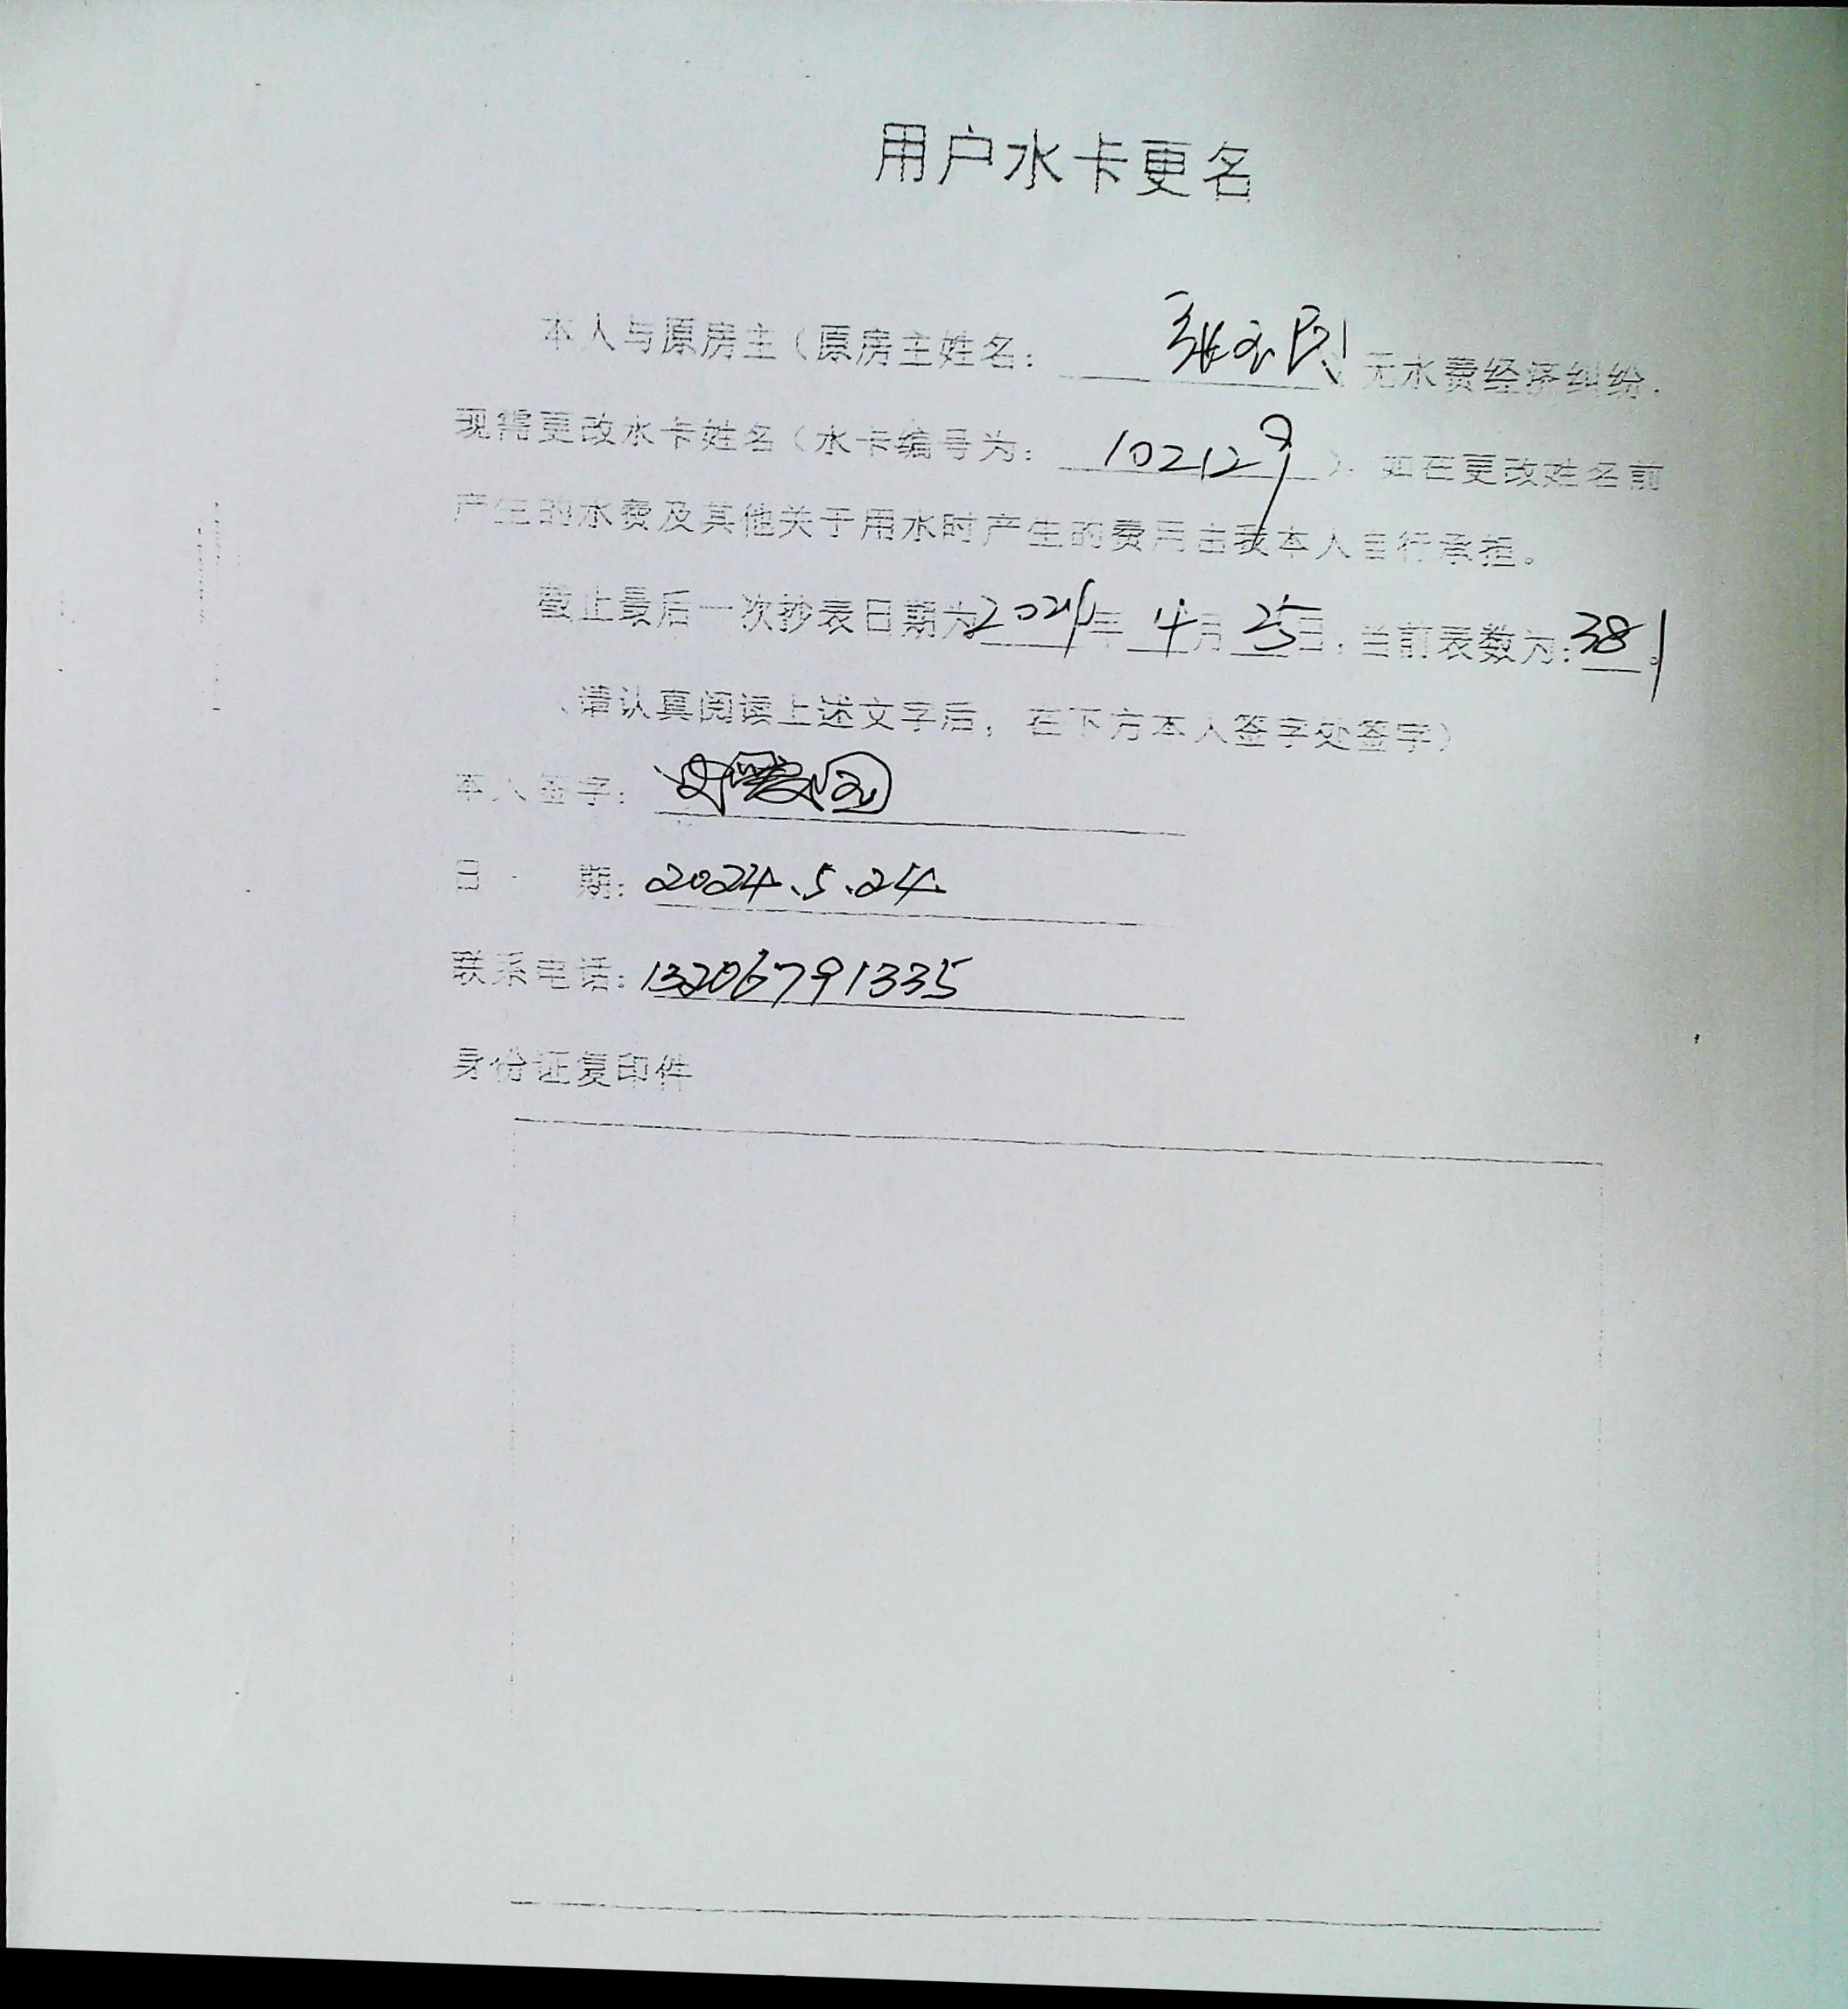 用户水卡更名
本人与原房主(原房主姓名: 张 无水费经济纠纷.
现需更改水卡姓名(水卡编号为: 102129 ). 如在更改姓名前
产生的水费及其他关于用水时产生的费用由我本人自行承担。
截止最后一次抄表日期为2024年 4月 25日,当前表数为:381。
(请认真阅读上述文字后,在下方本人签字处签字)
本人签字:
日 期: 2024.5.24
联系电话: 13206791335
身份证复印件